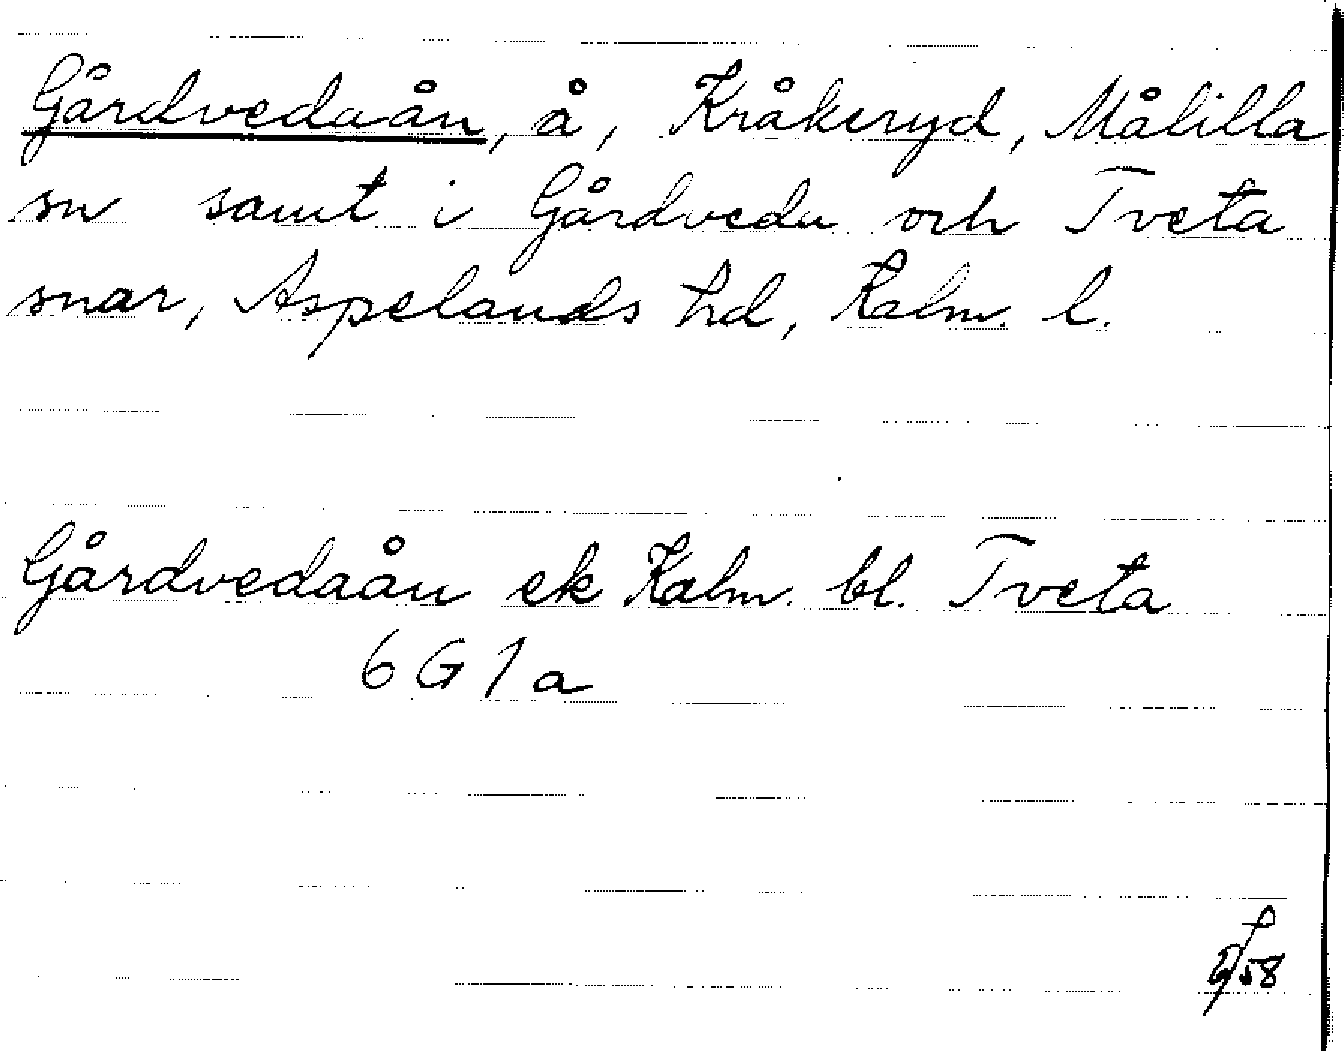 Gårdvedaån, å, Kråkeryd, Målilla
sn samt i Gårdveda och Tveta
snar, Aspelands hd, Kalm. l.
Gårdvedaån ek Kalm. bl. Tveta
6 G 1 a
58